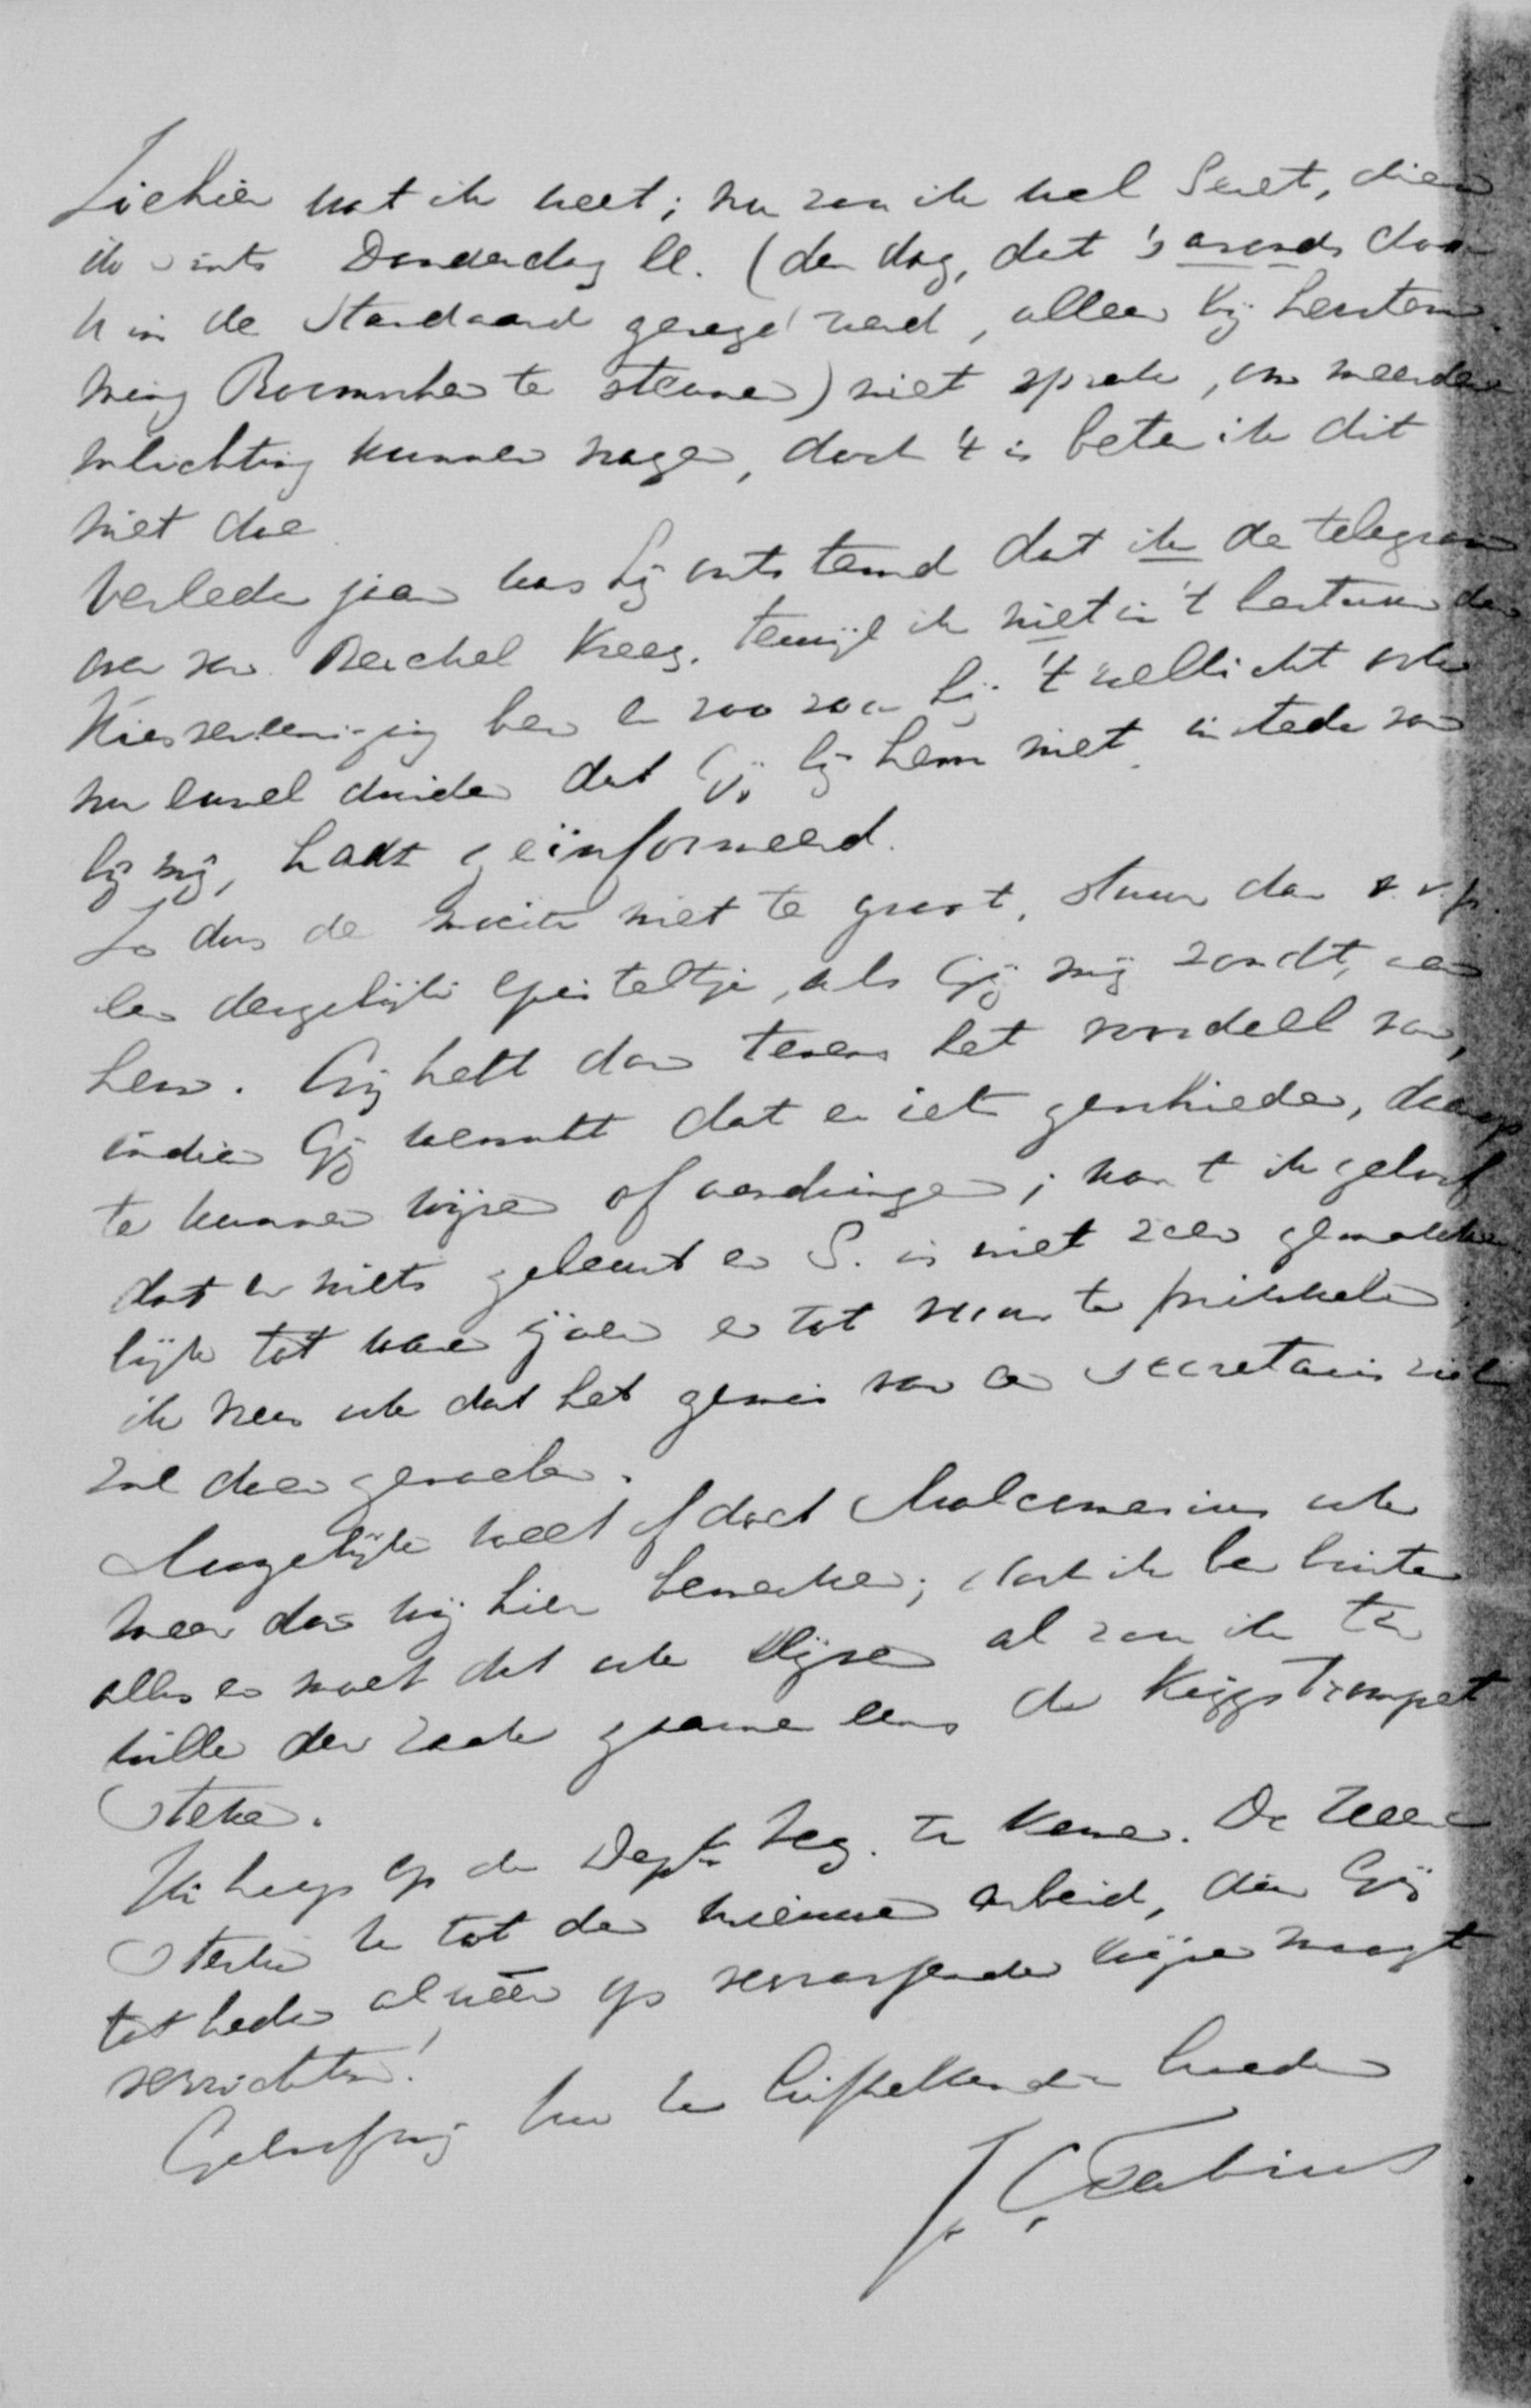 Ziehier wat ik weet; nu zou ik wel Seret, dien
ik sints Donderdag ll. (den dag, dat 's avonds door
U in de Standaard gezegd werd, alleen bij herstem-
ming te steunen) niet sprak, om meerdere
inlichting kunnen vragen, doch 't is beter ik dit
niet doe.
Verleden jaar was hij ontstemd dat ik de telegram
over van Reichel kreeg, terwijl ik niet in 't bestuur der
Kiesvereeniging ben en zoo zou hij 't wellicht ook
nu euvel duiden dat Gij bij hem niet, in stede van
bij mij, hadt geïnformeerd.
Is dus de moeite niet te groot, stuur dan s.v.p.
een dergelijk episteltje, als Gij mij zondt, aan
hem. Gij hebt dan tevens het voordeel van,
indien Gij verwacht dat er iets geschiede, daarop
te kunnen wijzen of aandringen; want ik geloof
dat er niets gebeurt en S. is niet zeer gemakke-
lijk tot en tot te prikkelen;
ik vrees ook dat het gemis van een secretaris zich
zal doen gevoelen.
Mogelijk weet of doet ook
meer dan wij hier bemerken; doch ik ben buiten
alles en moet dat ook blijven al zou ik ter
wille der zaak gaarne eens de krijgstrompet
steken.
Ik hoop op de Dept. Verg. te komen. De Heere
sterke U tot den nieuwen arbeid, dien Gij
tot heden alweêr op verrassende wijze moogt
verrichten!
Geloof mij hoo
J. C. Fabius.